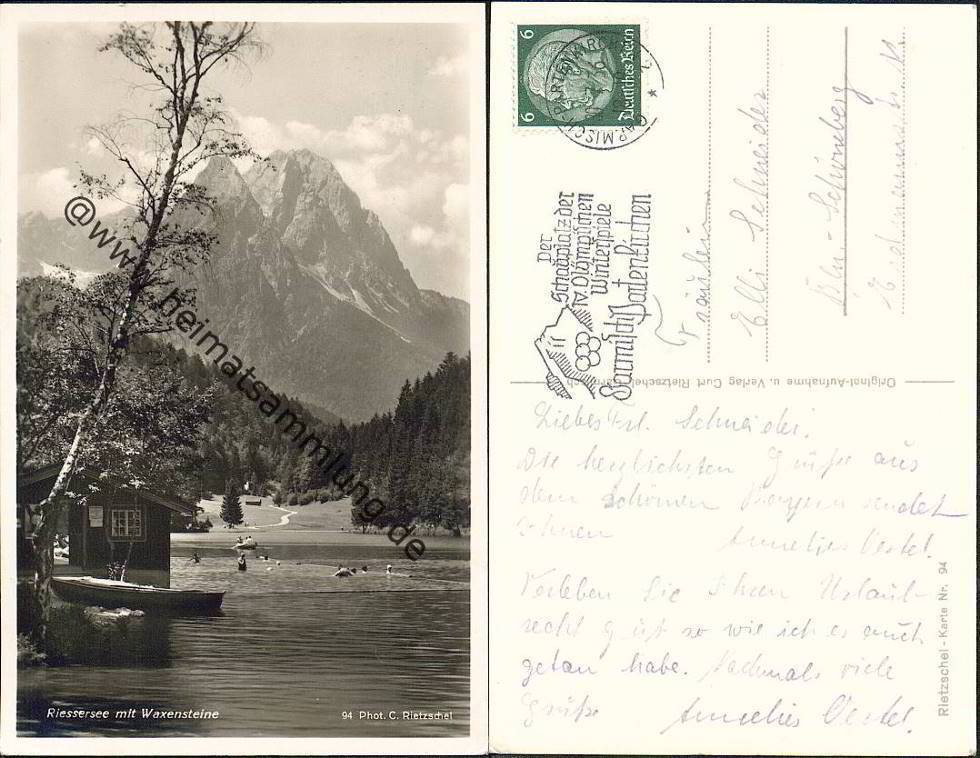 @www.heimatsammlung.de
Riessersee mit Waxensteine
94 Phot. C. Rietzschel
6 6
Deutsches Reich
GARMISCH-PARTENKIRCHEN
Der
Schauplatz der
IV. Olympischen
Winterspiele
Garmisch-Partenkirchen
Fräulein
Elli Schneider
Köln-Schönberg
Original-Aufnahme u. Verlag Curt Rietzschel, Garmisch
Liebes Frl. Schneider.
Die herzlichsten Grüße aus
dem schönen Bayern sendet
Ihnen Annelies Oestel.
Verleben Sie Ihren Urlaub
recht gut so wie ich es auch
getan habe. Nochmals viele
Grüße Annelies Oestel.
Rietzschel-Karte Nr. 94